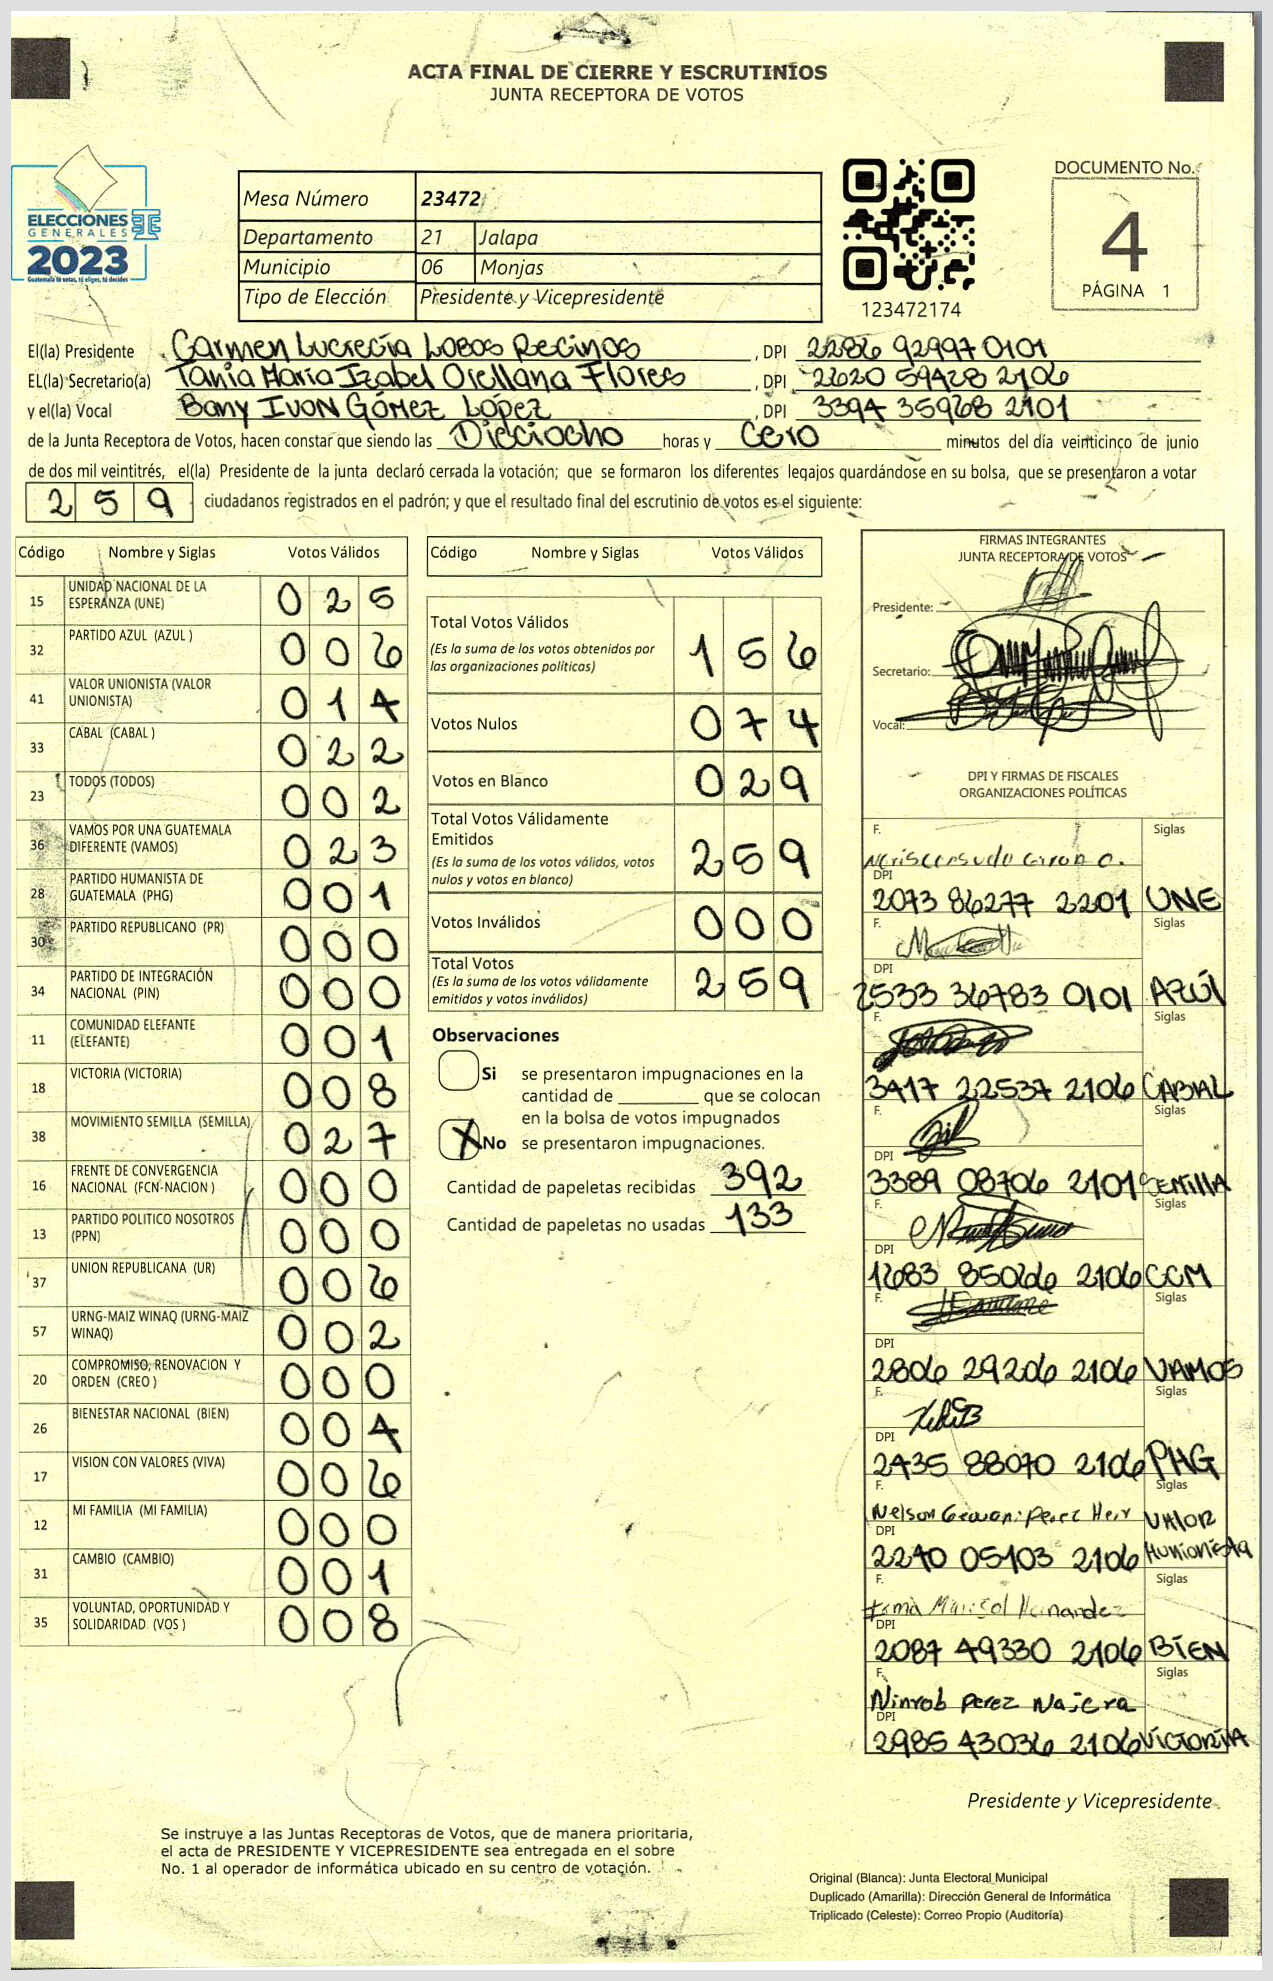 ACTA FINAL DE CIERRE Y ESCRUTINIOS
JUNTA RECEPTORA DE VOTOS
ELECCIONES
GENERALES
2023
Guatemala tú votas, tú eliges, tú decides
Mesa Número 23472
Departamento 21 Jalapa
Municipio 06 Monjas
Tipo de Elección Presidente y Vicepresidente
123472174
DOCUMENTO No.
4
PÁGINA 1
El(la) Presidente Carmen Lucrecia Lobos Recinos , DPI 2286 92997 0101
EL(la) Secretario(a) Tania María Izabel Orellana Flores , DPI 2620 59428 2106
y el(la) Vocal Bany Ivon Gómez López , DPI 3394 35968 2101
de la Junta Receptora de Votos, hacen constar que siendo las Dieciocho horas y Cero minutos del día veinticinco de junio
de dos mil veintitrés, el(la) Presidente de la junta declaró cerrada la votación; que se formaron los diferentes legajos guardándose en su bolsa, que se presentaron a votar
259 ciudadanos registrados en el padrón; y que el resultado final del escrutinio de votos es el siguiente:
Código Nombre y Siglas Votos Válidos
15 UNIDAD NACIONAL DE LA ESPERANZA (UNE) 025
32 PARTIDO AZUL (AZUL ) 006
41 VALOR UNIONISTA (VALOR UNIONISTA) 014
33 CABAL (CABAL ) 022
23 TODOS (TODOS) 002
36 VAMOS POR UNA GUATEMALA DIFERENTE (VAMOS) 023
28 PARTIDO HUMANISTA DE GUATEMALA (PHG) 001
30 PARTIDO REPUBLICANO (PR) 000
34 PARTIDO DE INTEGRACIÓN NACIONAL (PIN) 000
11 COMUNIDAD ELEFANTE (ELEFANTE) 001
18 VICTORIA (VICTORIA) 008
38 MOVIMIENTO SEMILLA (SEMILLA) 027
16 FRENTE DE CONVERGENCIA NACIONAL (FCN-NACION ) 000
13 PARTIDO POLITICO NOSOTROS (PPN) 000
37 UNION REPUBLICANA (UR) 006
57 URNG-MAIZ WINAQ (URNG-MAIZ WINAQ) 002
20 COMPROMISO, RENOVACION Y ORDEN (CREO ) 000
26 BIENESTAR NACIONAL (BIEN) 004
17 VISION CON VALORES (VIVA) 006
12 MI FAMILIA (MI FAMILIA) 000
31 CAMBIO (CAMBIO) 001
35 VOLUNTAD, OPORTUNIDAD Y SOLIDARIDAD (VOS ) 008
Código Nombre y Siglas Votos Válidos
Total Votos Válidos 156
(Es la suma de los votos obtenidos por
las organizaciones políticas)
Votos Nulos 074
Votos en Blanco 029
Total Votos Válidamente
Emitidos 259
(Es la suma de los votos válidos, votos
nulos y votos en blanco)
Votos Inválidos 000
Total Votos 259
(Es la suma de los votos válidamente
emitidos y votos inválidos)
Observaciones
Si se presentaron impugnaciones en la
cantidad de ________ que se colocan
en la bolsa de votos impugnados
X No se presentaron impugnaciones.
Cantidad de papeletas recibidas 392
Cantidad de papeletas no usadas 133
FIRMAS INTEGRANTES
JUNTA RECEPTORA DE VOTOS
Presidente:
Secretario:
Vocal:
DPI Y FIRMAS DE FISCALES
ORGANIZACIONES POLÍTICAS
F. Siglas
DPI
2073 86277 2201 UNE
F. Siglas
DPI
2533 36783 0101 AZÚL
F. Siglas
3417 22537 2106 CABAL
F. Siglas
DPI
3389 08706 2101 SEMILLA
F. Siglas
DPI
1683 85066 2106 CCM
F. Siglas
DPI
2806 29206 2106 VAMOS
F. Siglas
DPI
2435 88070 2106 PHG
F. Siglas
Nelson Geovani Perez Herr
DPI
2240 05103 2106 VALOR Hunionista
F. Siglas
Irma Marisol Hernandez
DPI
2087 49330 2106 BIEN
F. Siglas
Ninrob Perez Najera
DPI
2985 43036 2106 VICTORIA
Presidente y Vicepresidente
Se instruye a las Juntas Receptoras de Votos, que de manera prioritaria,
el acta de PRESIDENTE Y VICEPRESIDENTE sea entregada en el sobre
No. 1 al operador de informática ubicado en su centro de votación.
Original (Blanca): Junta Electoral Municipal
Duplicado (Amarilla): Dirección General de Informática
Triplicado (Celeste): Correo Propio (Auditoría)